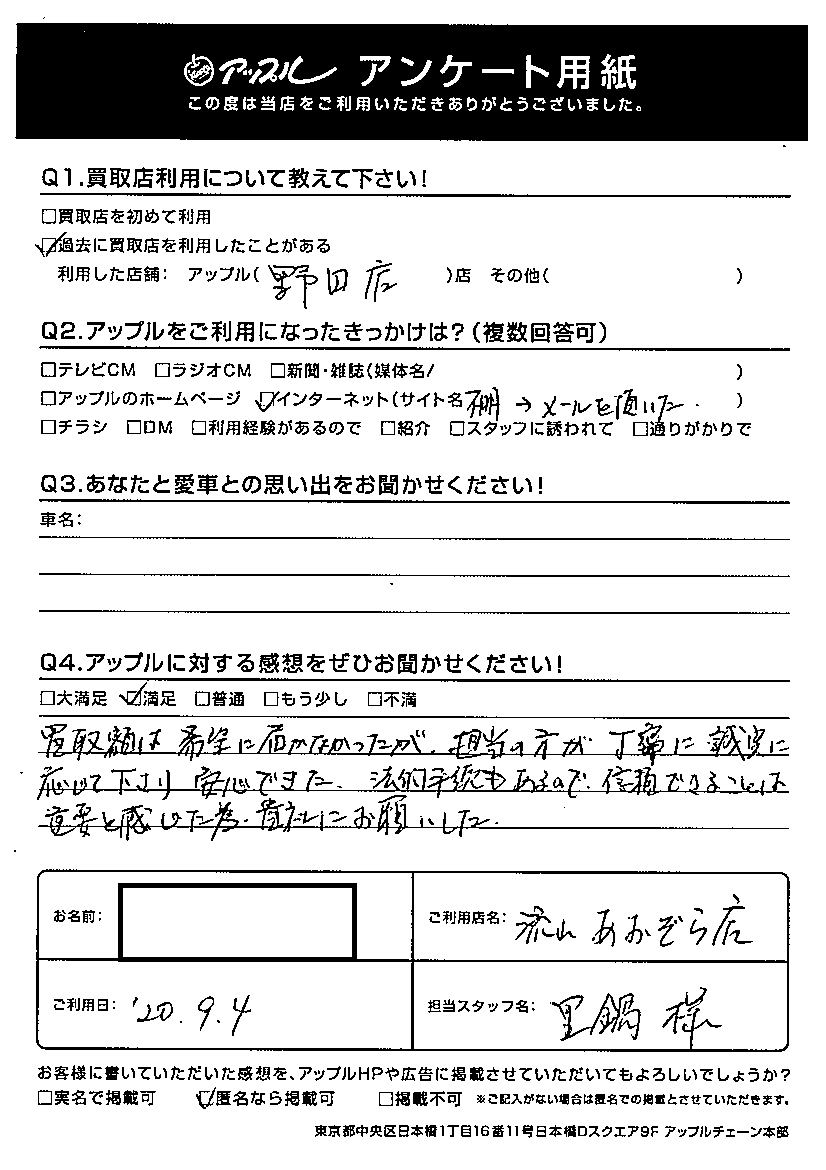 アップル アンケート用紙
この度は当店をご利用いただきありがとうございました。
Q1.買取店利用について教えて下さい!
□買取店を初めて利用
☑過去に買取店を利用したことがある
利用した店舗: アップル(野田店)店 その他( )
Q2.アップルをご利用になったきっかけは?(複数回答可)
□テレビCM □ラジオCM □新聞・雑誌(媒体名/ )
□アップルのホームページ ☑インターネット(サイト名 → メールを頂いた。)
□チラシ □DM □利用経験があるので □紹介 □スタッフに誘われて □通りがかりで
Q3.あなたと愛車との思い出をお聞かせください!
車名:
Q4.アップルに対する感想をぜひお聞かせください!
□大満足 ☑満足 □普通 □もう少し □不満
買取額は希望に届かなかったが、担当の方が丁寧に誠実に
応じて下さり安心できた。法的手続もあるので、信頼できることは
重要と感じた為、貴社にお願いした。
お名前:
ご利用店名: 流山あおぞら店
ご利用日: '20.9.4
担当スタッフ名: 里鍋 様
お客様に書いていただいた感想を、アップルHPや広告に掲載させていただいてもよろしいでしょうか?
□実名で掲載可 ☑匿名なら掲載可 □掲載不可 ※ご記入がない場合は匿名での掲載とさせていただきます。
東京都中央区日本橋1丁目16番11号日本橋Dスクエア9F アップルチェーン本部